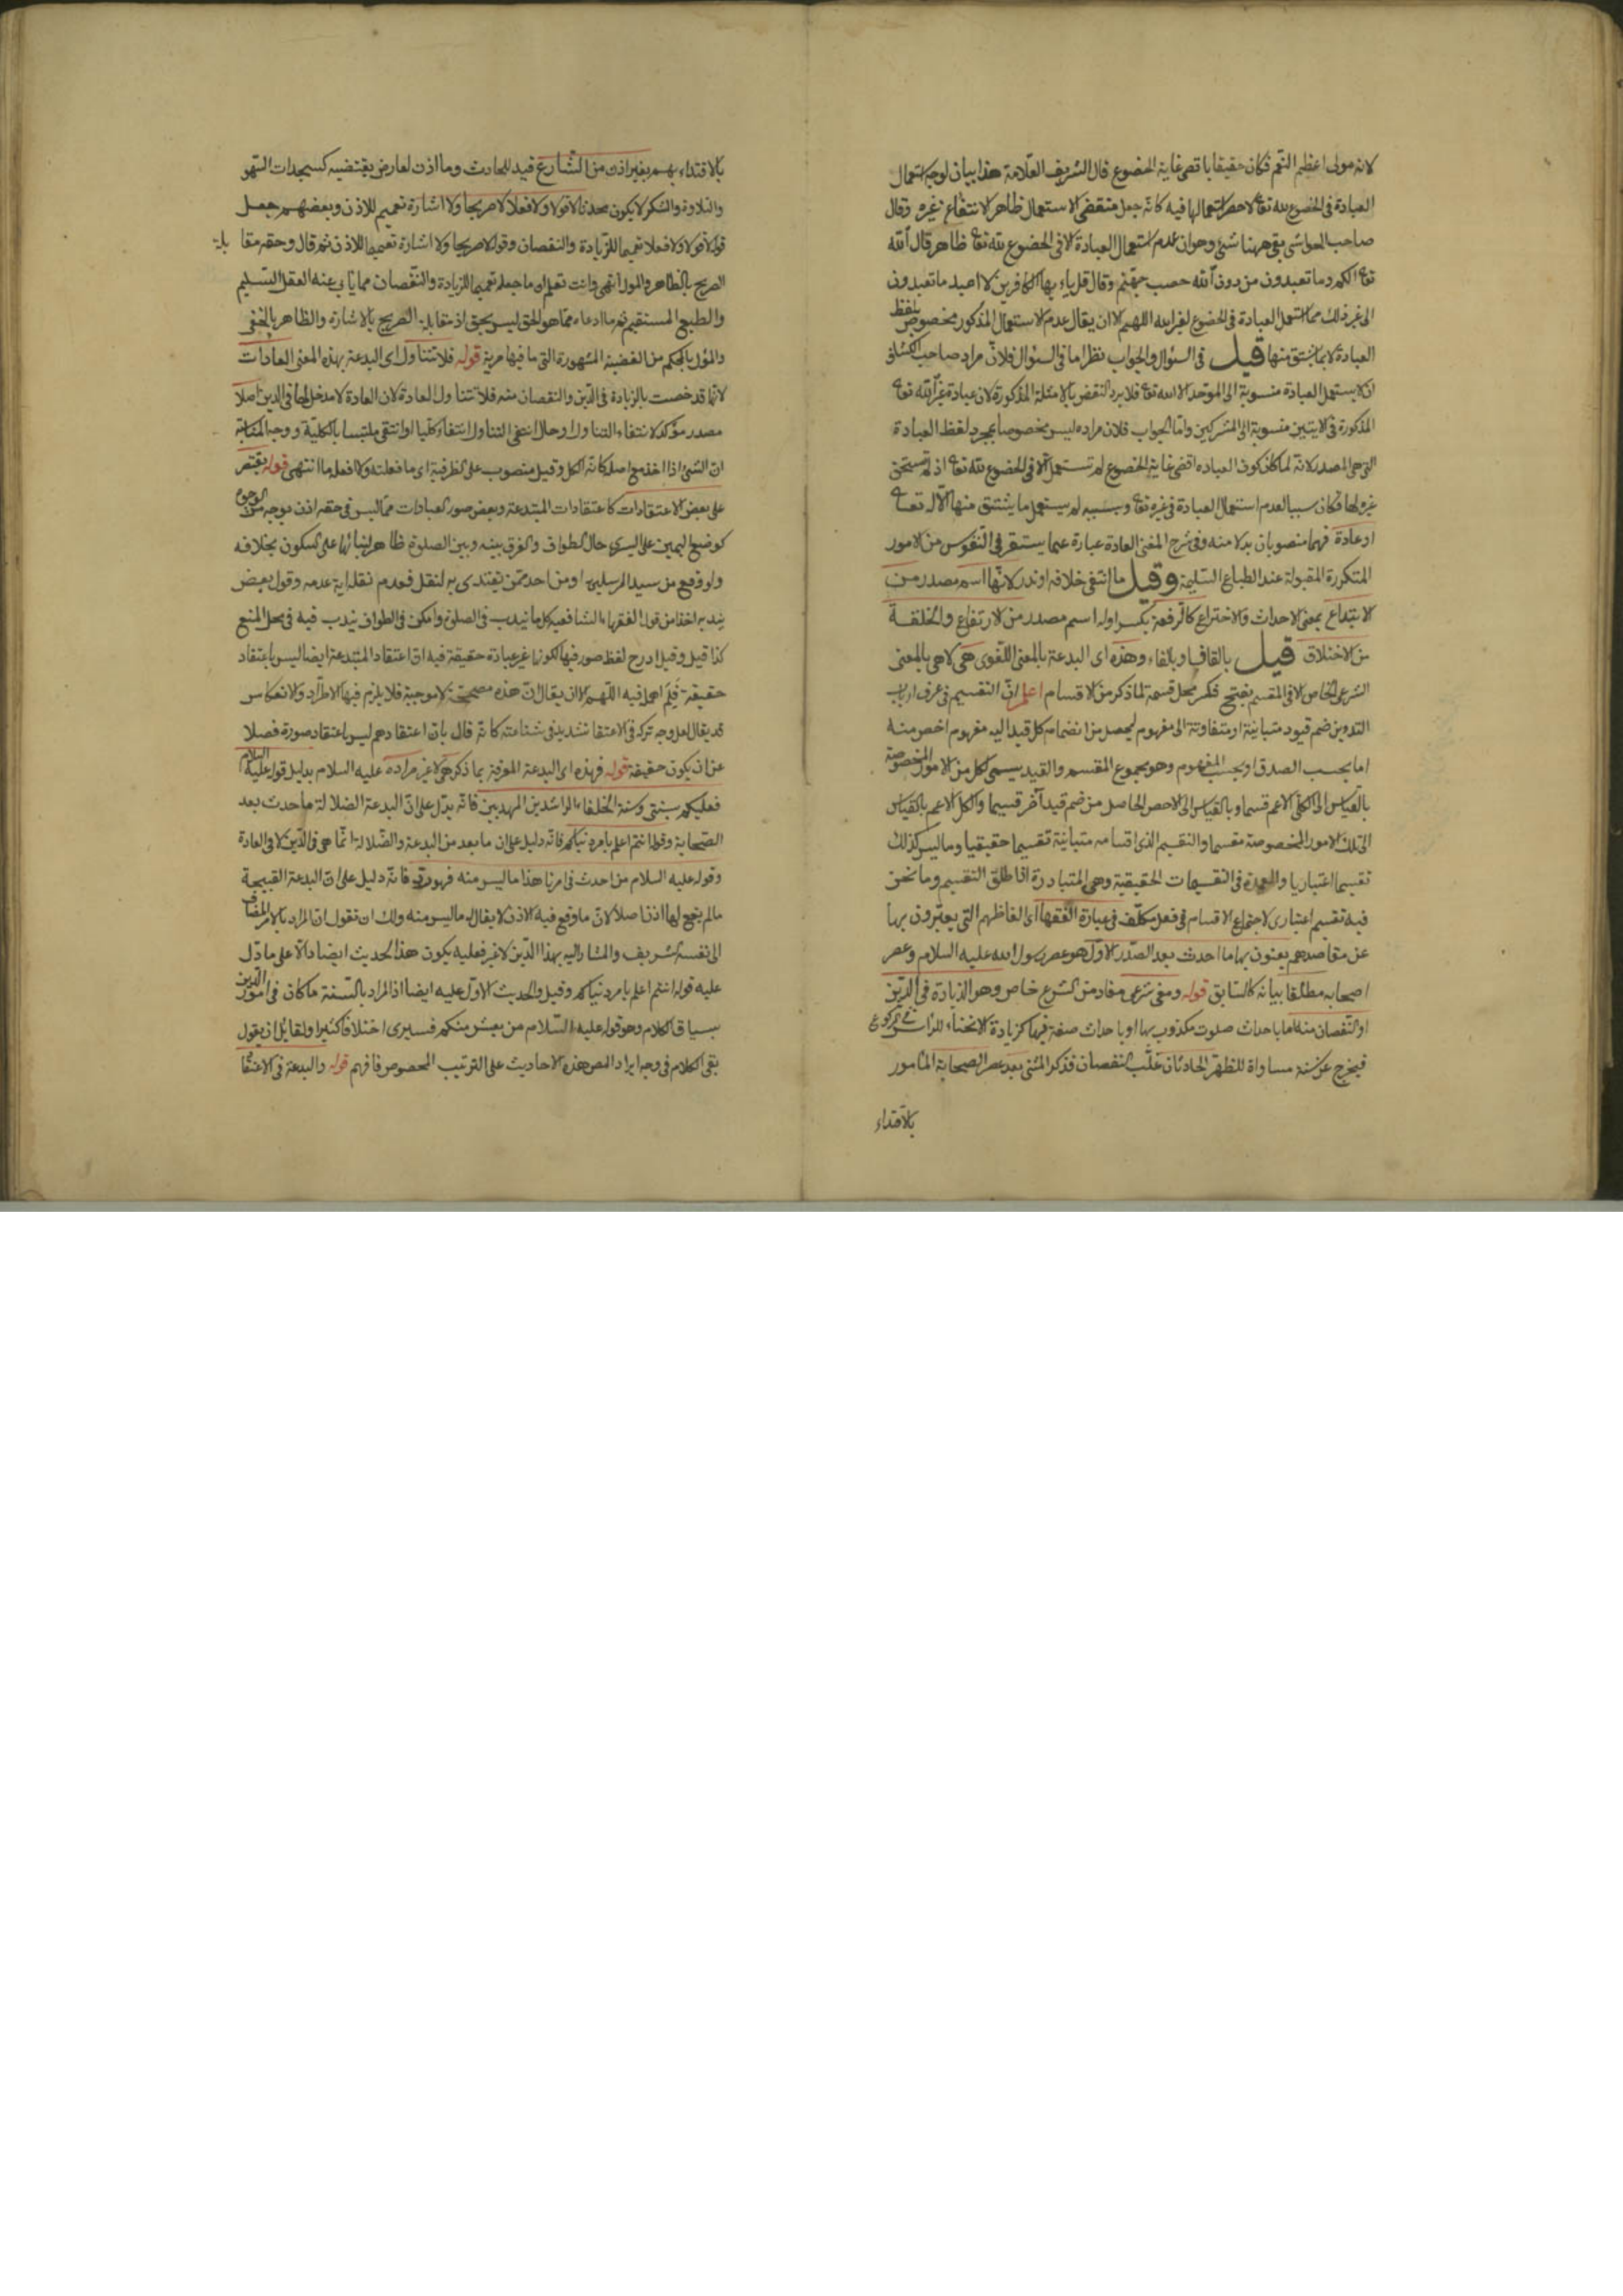 لانه مولى اعظم النعم فكان حقيقا باقصى غاية الخضوع قال الشريف العلامة هذا بيان لوجه استعمال
العبادة فى الخضوع لله تعا لا حصر استعمالها فيه كانه جعل مقتضى الاستعمال ظاهر الانتفاع غيره وقال
صاحب الحواشى بقى ههنا شئ وهو ان عدم استعمال العبادة الا فى الخضوع لله تعا ظاهر قال الله
تعا انكم وما تعبدون من دون الله حصب جهنم وقال قل ياء يها الكافرين لا اعبد ما تعبدون
الى غير ذلك مما استعمل العبادة فى الخضوع لغير الله اللهم الا ان يقال عدم الاستعمال المذكور مخصوص بلفظ
العبادة لا بما يشتق منها قيل فى السؤال والجواب نظر اما فى السؤال فلان مراد صاحب الكشاف
ان لا يستعمل العبادة منسوبة الى الموحد الا لله تعا فلا يرد النقض بالامثلة المذكورة لان عبادة غير الله تعا
المذكورة فى الايتين منسوبة الى المشركين واما الجواب فلان مراده ليس مخصوصا بمجرد لفظ العبادة
التى هى المصدر لانه لما كان كون العباده اقصى غاية الخضوع لم تستعمل الا فى الخضوع لله تعا اذ لا يستحق
غيره لها فكان سببا لعدم استعمال العبادة فى غيره تعا وبسببه لم يستعمل ما يشتق منها الا له تعا
او عادة فهما منصوبان بدلا منه وفى شرح المغنى العادة عبارة عما يستقر فى النفوس من الامور
المتكررة المقبولة عند الطباع السليمة وقيل ما انتفى خلافه او ندر لانها اسم مصدر من
الابتداع بمعنى الاحداث والاختراع كالرفعة بكسر اوله اسم مصدر من الارتفاع والخلفة
من الاختلاق قيل بالقاف او بالفاء وهذه اى البدعة بالمعنى اللغوى هى لا هى بالمعنى
الشرعى الخاص لا فى المقسم بفتح فكسر محل قسمة لما ذكر من الاقسام اعلم ان التقسيم فى عرف ارباب
التدوين ضم قيود متباينة او متفاوتة الى مفهوم ليحصل من انضمام كل قيد اليه مفهوم اخص منه
اما بحسب الصدق او بحسب المفهوم وهو مجموع المقسم والقيد يسمى كل من الامور المخصوصة
بالقياس الى الكلى الاعم قسما وبالقياس الى الاخص الحاصل من ضم قيد آخر قسيما والكل الاعم بالقياس
الى تلك الامور المخصوصة مقسما والتقسيم الذى اقسامه متباينة تقسيما حقيقيا وما ليس كذلك
تقسيما اعتباريا والعمدة فى التقسيمات الحقيقية وهى المتبادرة اذا طلق التقسيم وما نحن
فيه تقسيم اعتبارى لاجتماع الاقسام فى فعل مكلف فى عبارة الفقهاء اى الفاظهم التى يعبرون بها
عن مقاصدهم يعنون بها ما احدث بعد الصدر الاول هو عصر رسول الله عليه السلام وعصر
اصحابه مطلقا بيانه كالسابق قوله ومعنى شرعى مفاد من الشرع خاص وهو الزيادة فى الدين
او النقصان منه اما باحداث صلوت مكذوب بها او باحداث صفة فيها كزيادة الانحناء للراس فى الركوع
فيخرج عن سنة مساواة للظهر الحادثان غلب النقصان فذكر المثنى بعد عصر الصحابة المأمور
بالاقتداء
بالاقتداء بهم بغير اذن من الشارع قيد للحادث وما اذن لعارض يقتضيه كسجدات السهو
والتلاوة والشكر لا يكون محدثا لا قولا ولا فعلا لا صريحا ولا اشارة تعميم للاذن وبعضهم جعل
قوله لا قولا ولا فعلا تعميما للزيادة والنقصان وقوله لا صريحا ولا اشارة تعميما للاذن ثم قال وحقه مقا بلة
الصريح بالظاهر والمؤل انتهى وانت تعلم ان ما جعله تعميما للزيادة والنقصان مما يأبى عنه العقل السليم
والطبع المستقيم ثم ما ادعاه مما هو الحق ليس بحق اذ مقابلة الصريح بالاشارة والظاهر بالخفى
والمؤل بالمحكم من القضية المشهورة التى ما فيها مرية قوله فلا تتناول اى البدعة بهذه المعنى العادات
لانها قد خصت بالزيادة فى الدين والنقصان منه فلا تتناول العادة لان العادة لا مدخل لها فى الدين اصلا
مصدر مؤكد لانتفاء التناول او حال انتفى التناول انتفاء كليا او انتفى ملتبسا بالكلية ووجه المناسبة
ان الشئ اذا اخذ مع اصله كانه الكل وقيل منصوب على الظرفية اى ما فعلته ولا افعله ما انتهى قوله يقتصر
على بعض الاعتقادات كاعتقادات المبتدعة وبعض صور العبادات مما ليس فى حقه اذن بوجه من الوجوه
كوضع اليمين على اليسرى حال الطواف والفرق بينه وبين الصلوة ظاهر لبنائها على السكون بخلافه
ولو وقع من سيد المرسلين او من احد ممن يقتدى به لنقل فعدم نقله اية عدمه وقول بعض
بندبه اخذا من قول الفقهاء الشافعية كل ما يندب فى الصلوة وامكن فى الطواف يندب فيه فى محل المنع
كذا قيل وقيل ادرج لفظ صور فيها لكونها غير عبادة حقيقة فيه ان اعتقاد المبتدعة ايضا ليس باعتقاد
حقيقة فلم اهمل فيه اللهم الا ان يقال ان هذه مصححة لا موجبة فلا يلزم فيها الاطراد ولا انعكاس
قد يقال لعل وجه تركه فى الاعتقا تشديد فى شناعته كانه قال بان اعتقادهم ليس باعتقاد صورة فضلا
عن ان يكون حقيقة قوله فهذه اى البدعة المعرفة بما ذكر هى لا غير مراده عليه السلام بدليل قوله عليه السلام
فعليكم بسنتى وسنة الخلفاء الراشدين المهديين فانه يدل على ان البدعة الضلالة ما حدث بعد
الصحابة وقوله انتم اعلم بامر دنياكم فانه دليل على ان ما يعد من البدعة والضلالة انما هى فى الدين لا فى العادة
وقوله عليه السلام من احدث فى امرنا هذا ما ليس منه فهو رد فانه دليل على ان البدعة القبيحة
ما لم يقع لها اذن اصلا لان ما وقع فيه الاذن لا يقال له ما ليس منه ولك ان تقول ان المراد بالامر المضاف
الى نفسه الشريف والمشار اليه بهذا الدين لا غير فعليه يكون هذا الحديث ايضا دالا على ما دل
عليه قوله انتم اعلم بامر دنياكم وقيل والحديث الاول عليه ايضا اذ المراد بالسنة ما كان فى امور الدين
بسياق الكلام وهو قوله عليه السلام من يعش منكم فسيرى اختلافا كثيرا ولقائل ان يقول
بقى الكلام فى وجه ايراد المص هذه الاحاديث على الترتيب المخصوص فافهم قوله والبدعة فى الاعتقا